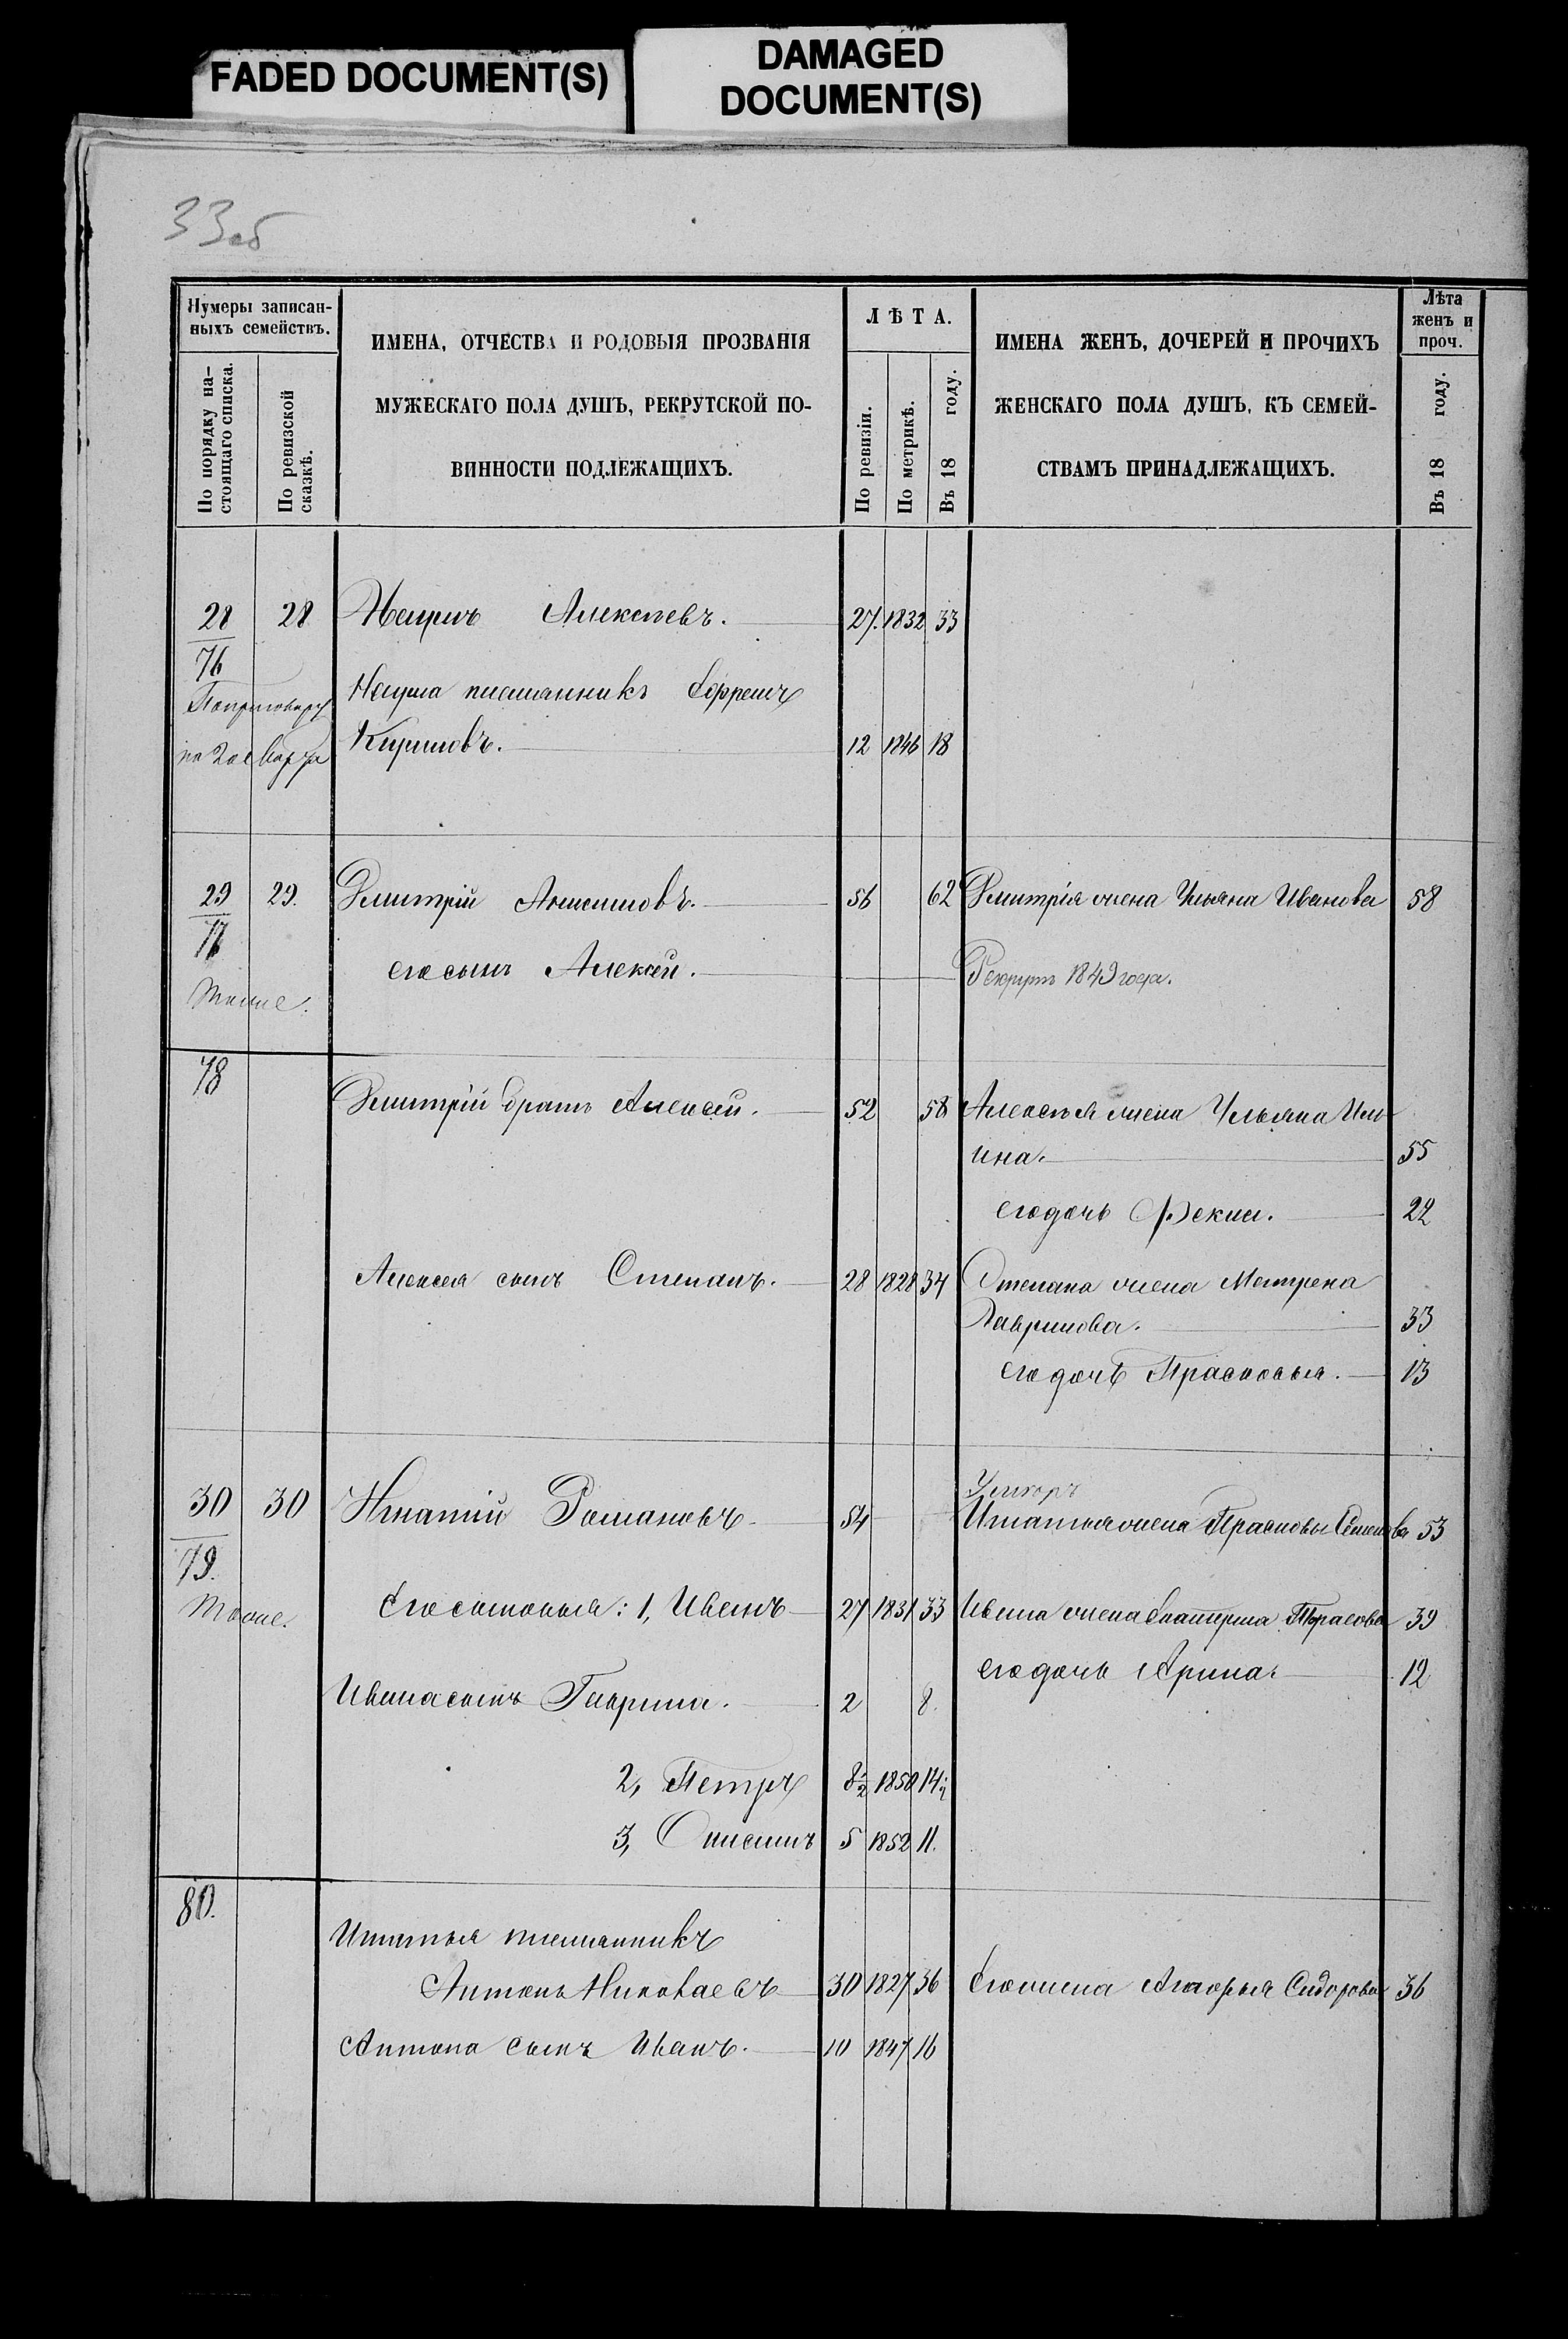 FADED DOCUMENT(S)
DAMAGED
DOCUMENT(S)
33об
Нумеры записан-
ныхъ семействъ.
По порядку на-
стоящаго списка.
По ревизской
сказкѣ.
ИМЕНА, ОТЧЕСТВА И РОДОВЫЯ ПРОЗВАНІЯ
МУЖЕСКАГО ПОЛА ДУШЪ, РЕКРУТСКОЙ ПО-
ВИННОСТИ ПОДЛЕЖАЩИХЪ.
ЛѢТА.
По ревизіи.
По метрикѣ.
Въ 18 году.
ИМЕНА ЖЕНЪ, ДОЧЕРЕЙ И ПРОЧИХЪ
ЖЕНСКАГО ПОЛА ДУШЪ, КЪ СЕМЕЙ-
СТВАМЪ ПРИНАДЛЕЖАЩИХЪ.
Лѣта
женъ и
проч.
Въ 18 году.
28 28 Алексѣевъ. 27. 1832 33
76
племянникъ Ефремъ
Кириловъ. 12 1846 18
29 29. Дмитрій Анисимовъ. 56 62 Дмитрія жена Ульяна Иванова 58
77
его сынъ Алексей. Рекрутъ 1849 года.
Тоже.
78
Дмитрій братъ Алексей. 52 58 Алексѣя жена Ульяна Иль-
ина. 55
его дочь Фекла. 22
Алексея сынъ Степанъ. 28 1828 34 Степана жена Матрена
Гаврилова. 33
его дочь Прасковья. 13
Умеръ
30 30 Игнатій Романовъ 54 Игнатья жена Прасковья Семенова 53
79.
Тоже. Его сыновья: 1, Иванъ 27 1831 33 Ивана жена Екатерина Тарасова 39
его дочь Арина. 12
Ивана сынъ Гаврила. 2 8.
2, Петръ 8½ 1850 14½
3, Онисимъ 5 1852 11.
80.
Игнатья племянникъ
Антонъ Николаевъ 30 1827 36 Его жена Агафья Сидорова 36
Антона сынъ Иванъ. 10 1847 16